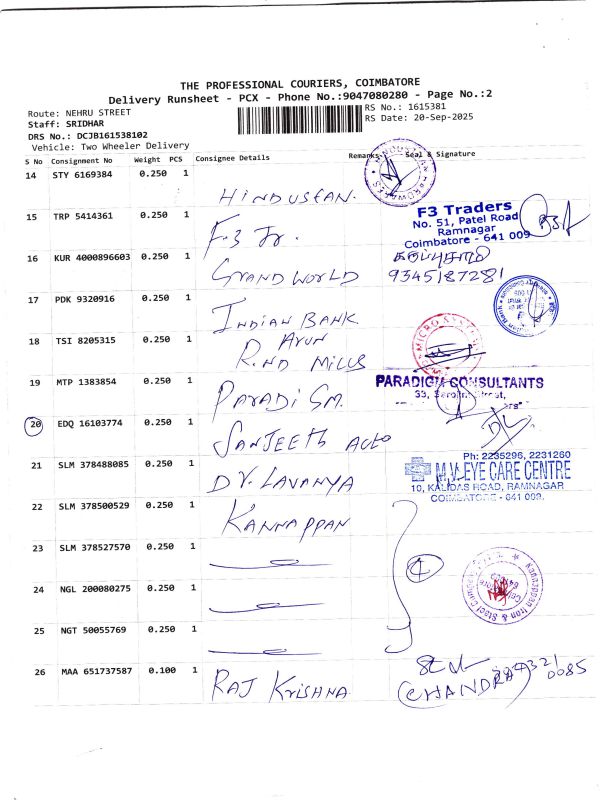 THE PROFESSIONAL COURIERS, COIMBATORE
Delivery Runsheet - PCX - Phone No.:9047080280 - Page No.:2
Route: NEHRU STREET
RS No.: 1615381
Staff: SRIDHAR
RS Date: 20-Sep-2025
DRS No.: DCJB161538102
Vehicle: Two Wheeler Delivery
S No Consignment No Weight PCS Consignee Details Remarks Seal & Signature
14 STY 6169384 0.250 1
HINDUSTAN.
15 TRP 5414361 0.250 1
F.3 Tr.
F3 Traders
No. 51, Patel Road
Ramnagar
Coimbatore - 641 009
16 KUR 4000896603 0.250 1
GRAND WORLD
கருப்புசாமி
9345187281
17 PDK 9320916 0.250 1
INDIAN BANK
18 TSI 8205315 0.250 1
D ARUN
R.ND MILLS
MICRO
19 MTP 1383854 0.250 1
PARADIGM.
PARADIGM CONSULTANTS
33, Sarojini Street,
20 EDQ 16103774 0.250 1
SANJEETH AUTO
21 SLM 378488085 0.250 1
DV. LAVANYA
Ph: 2235296, 2231260
M.V. EYE CARE CENTRE
10, KALIDAS ROAD, RAMNAGAR
COIMBATORE - 641 009.
22 SLM 378500529 0.250 1
KANNAPPAN
23 SLM 378527570 0.250 1
Kannappan Iron & Steel Company
24 NGL 200080275 0.250 1
25 NGT 50055769 0.250 1
26 MAA 651737587 0.100 1
RAJ KRISHNA
CHANDRA
0085